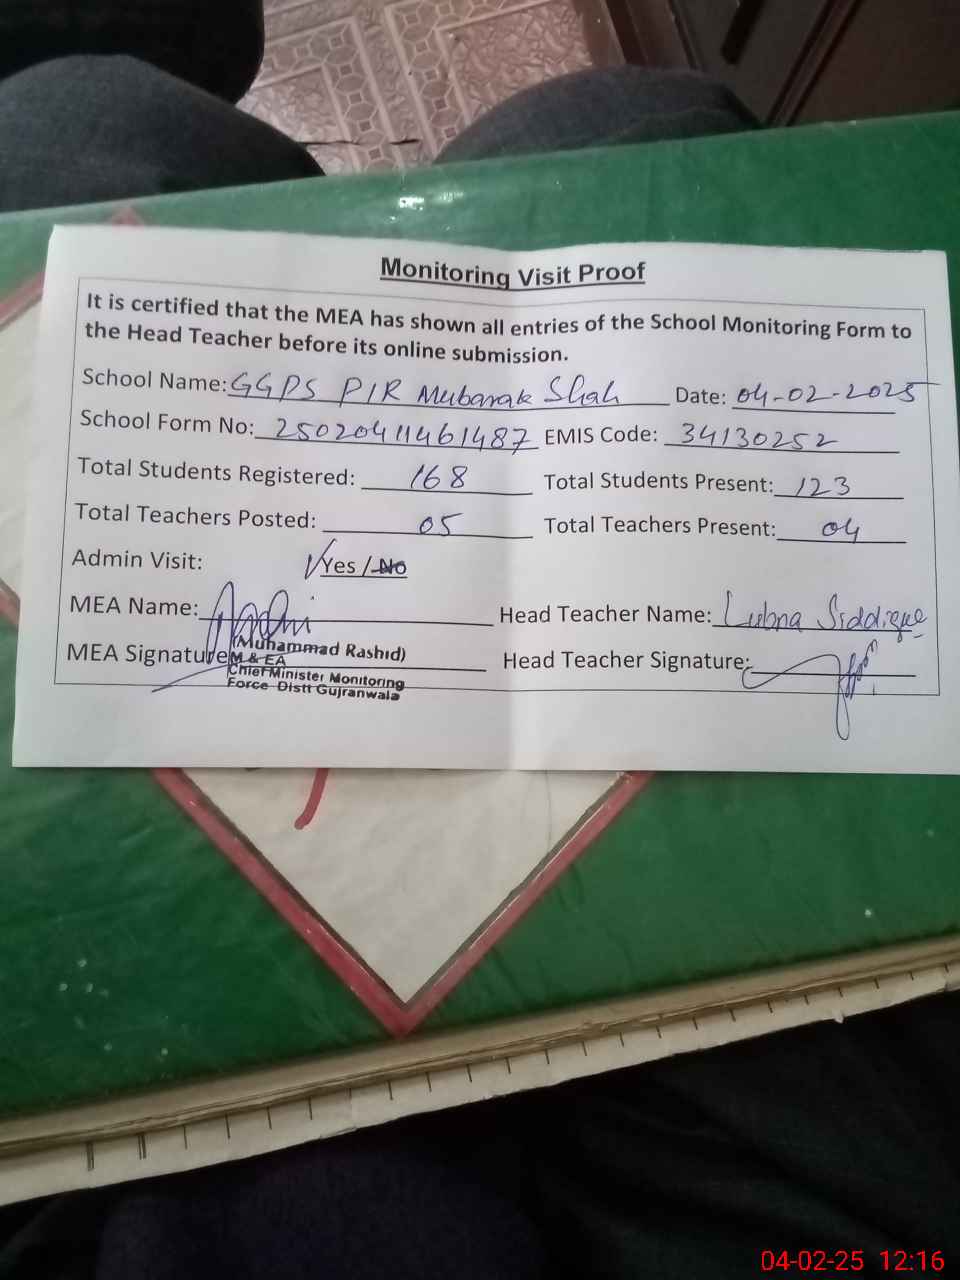 Monitoring Visit Proof
It is certified that the MEA has shown all entries of the School Monitoring Form to
the Head Teacher before its online submission.
School Name: GGPS PIR Mubarak Shah Date: 04-02-2025
School Form No: 25020411461487 EMIS Code: 34130252
Total Students Registered: 168 Total Students Present: 123
Total Teachers Posted: 05 Total Teachers Present: 04
Admin Visit: Yes / No
MEA Name: Head Teacher Name: Lubna Siddique
(Muhammad Rashid)
MEA Signature Head Teacher Signature:
M & EA
Chief Minister Monitoring
Force Distt Gujranwala
04-02-25 12:16